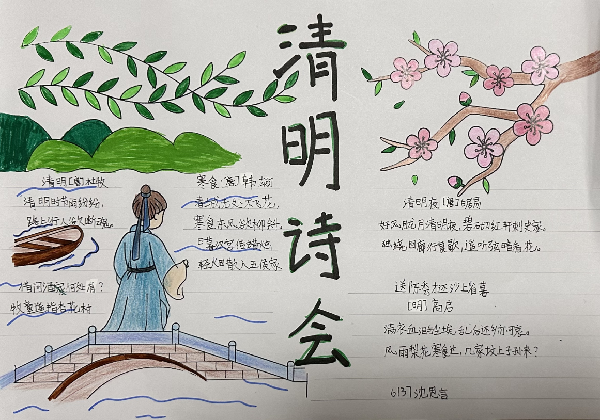 清明诗会
清明 [唐] 杜牧
清明时节雨纷纷,
路上行人欲断魂。
借问酒家何处有?
牧童遥指杏花村
寒食 [唐] 韩翃
春城无处不飞花,
寒食东风御柳斜。
日暮汉宫传蜡烛,
轻烟散入五侯家
清明夜 [唐] 白居易
好风胧月清明夜,碧砌红轩刺史家。
独绕回廊行复歇,遥听弦管暗看花。
送陈秀才还沙上省墓
[明] 高启
满衣血泪与尘埃,乱后还乡亦可哀。
风雨梨花寒食过,几家坟上子孙来?